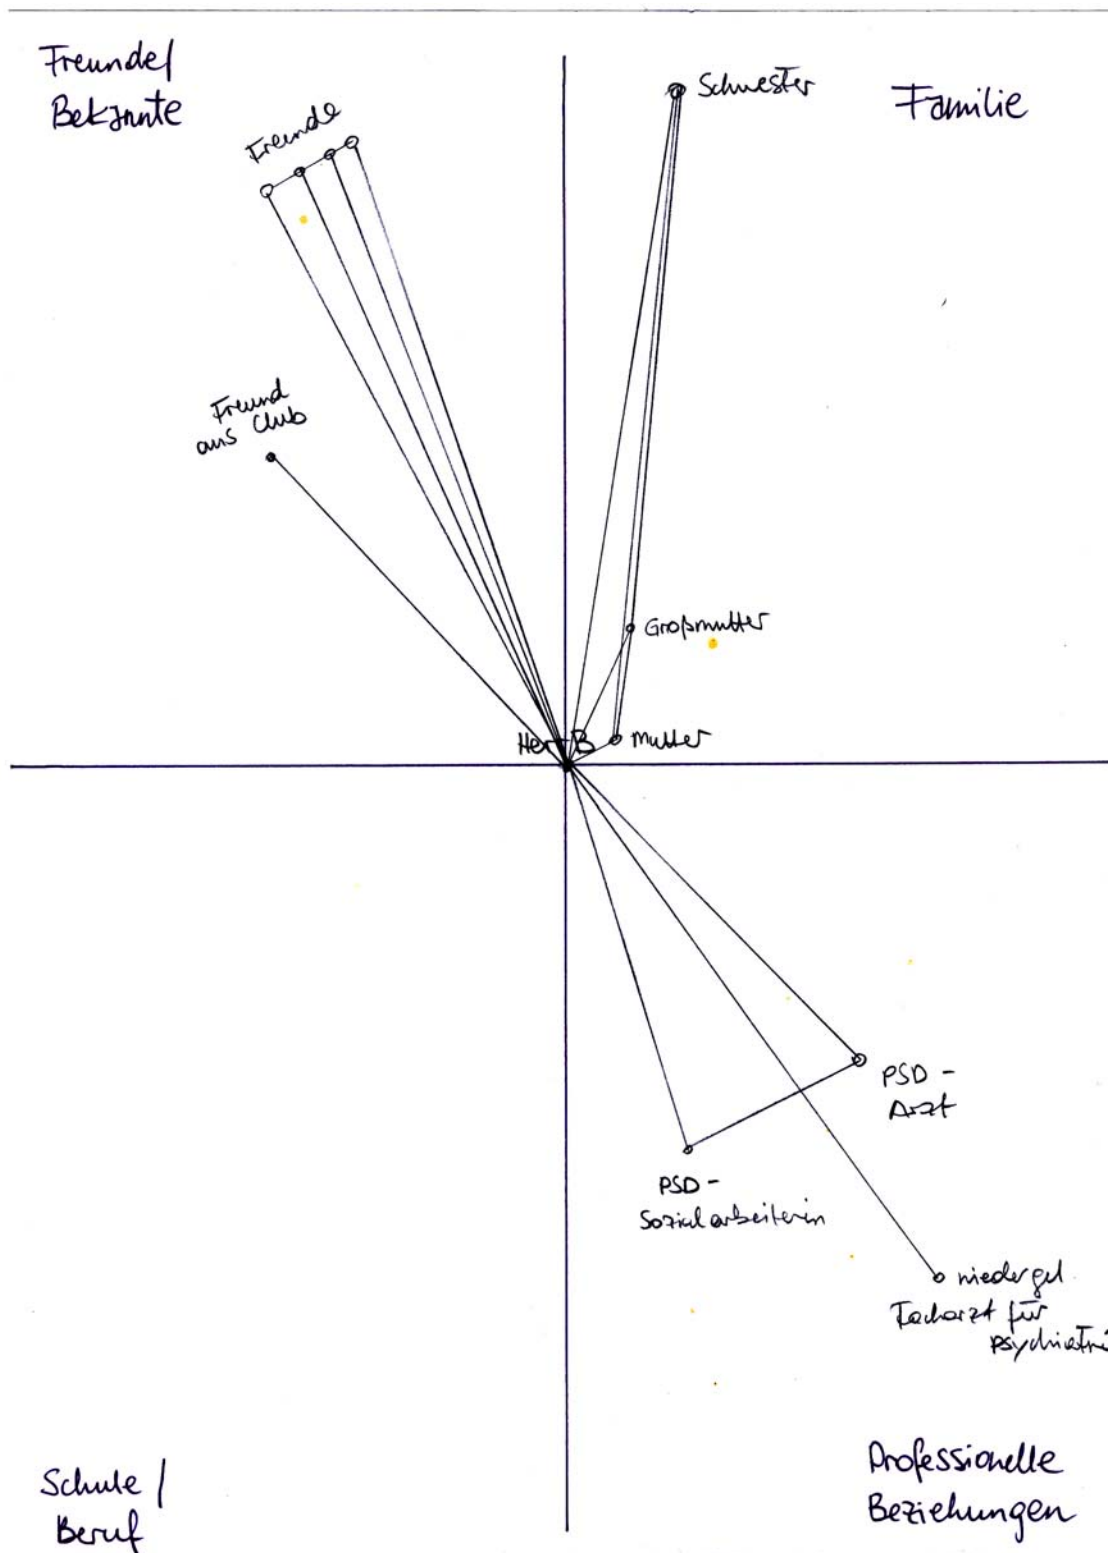 Freunde/
Bekannte
Freunde
Schwester
Familie
Freund
aus Club
Großmutter
Herr B
Mutter
PSD -
Arzt
PSD -
Sozialarbeiterin
niedergel.
Facharzt für
Psychiatri
Schule /
Beruf
Professionelle
Beziehungen